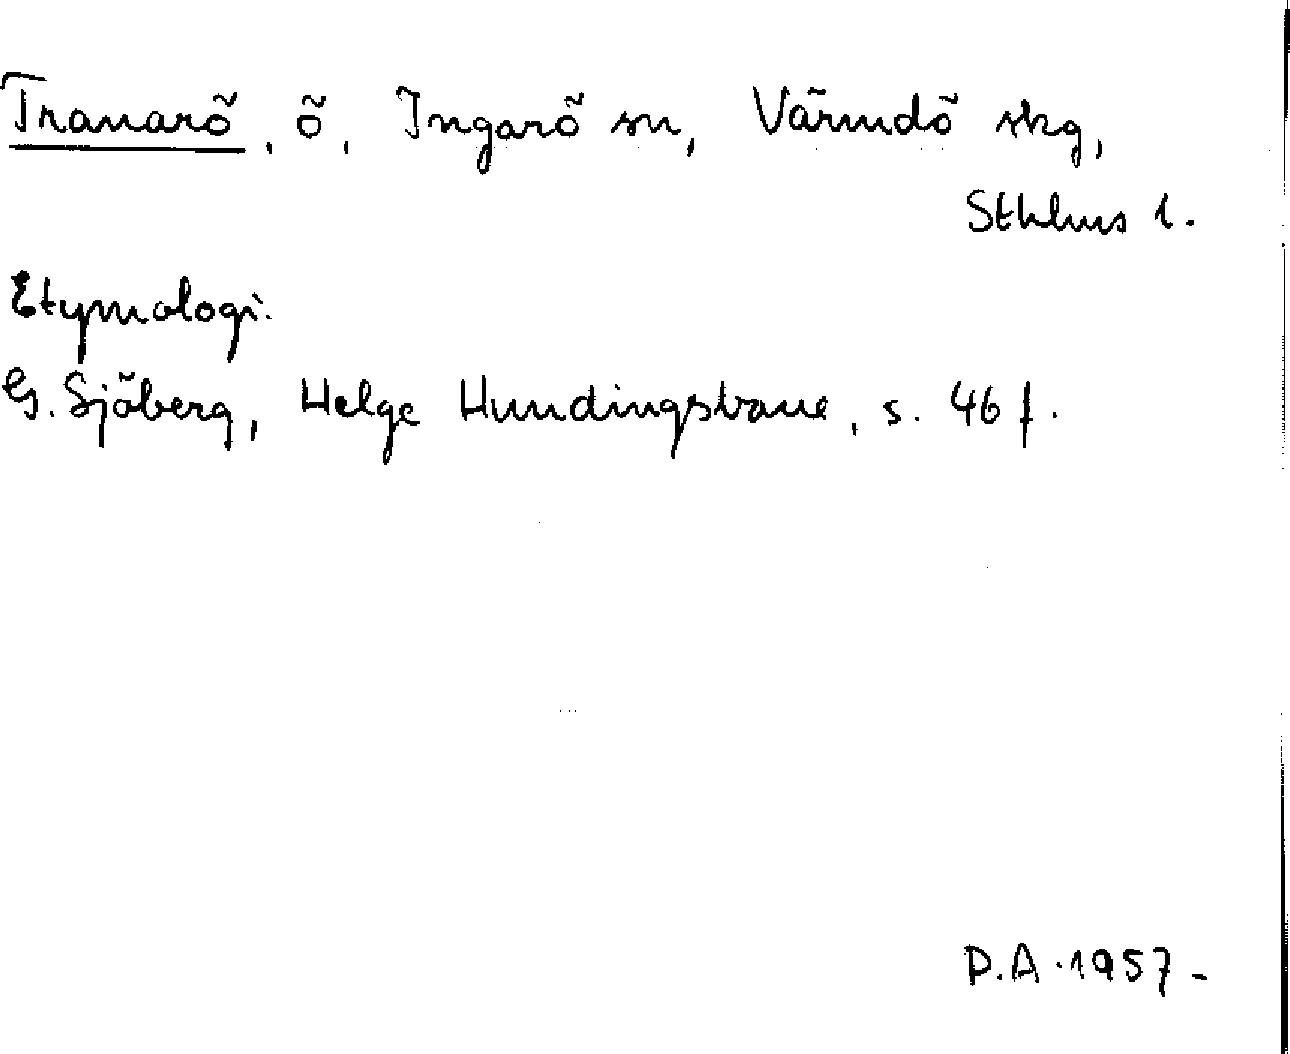 Tranarö, ö, Ingarö sn, Värmdö skg,
Sthlms l.
Etymologi:
G. Sjöberg, Helge Hundingsbane, s. 46 f.
D.A. 1957-